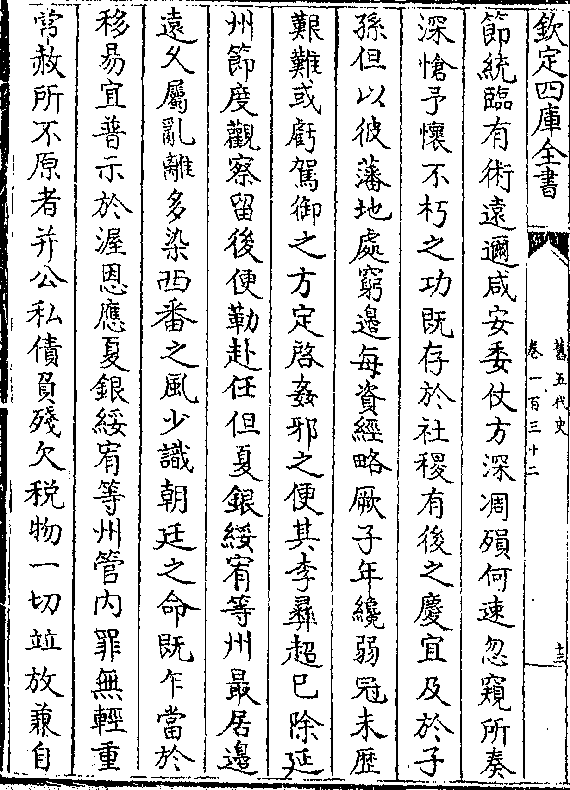 欽定四庫全書
舊五代史
卷一百三十二
十三
節統臨有術遠邇咸安委仗方深凋殞何速忽窺所奏
深愴予懷不朽之功既存於社稷有後之慶宜及於子
孫但以彼藩地處窮邊每資經略厥子年纔弱冠未歷
艱難或虧駕御之方定啓姦邪之便其李彞超已除延
州節度觀察留後便勒赴任但夏銀綏宥等州最居邊
遠久屬亂離多染西番之風少識朝廷之命既乍當於
移易宜普示於渥恩應夏銀綏宥等州管内罪無輕重
常赦所不原者并公私債負殘欠税物一切並放兼自